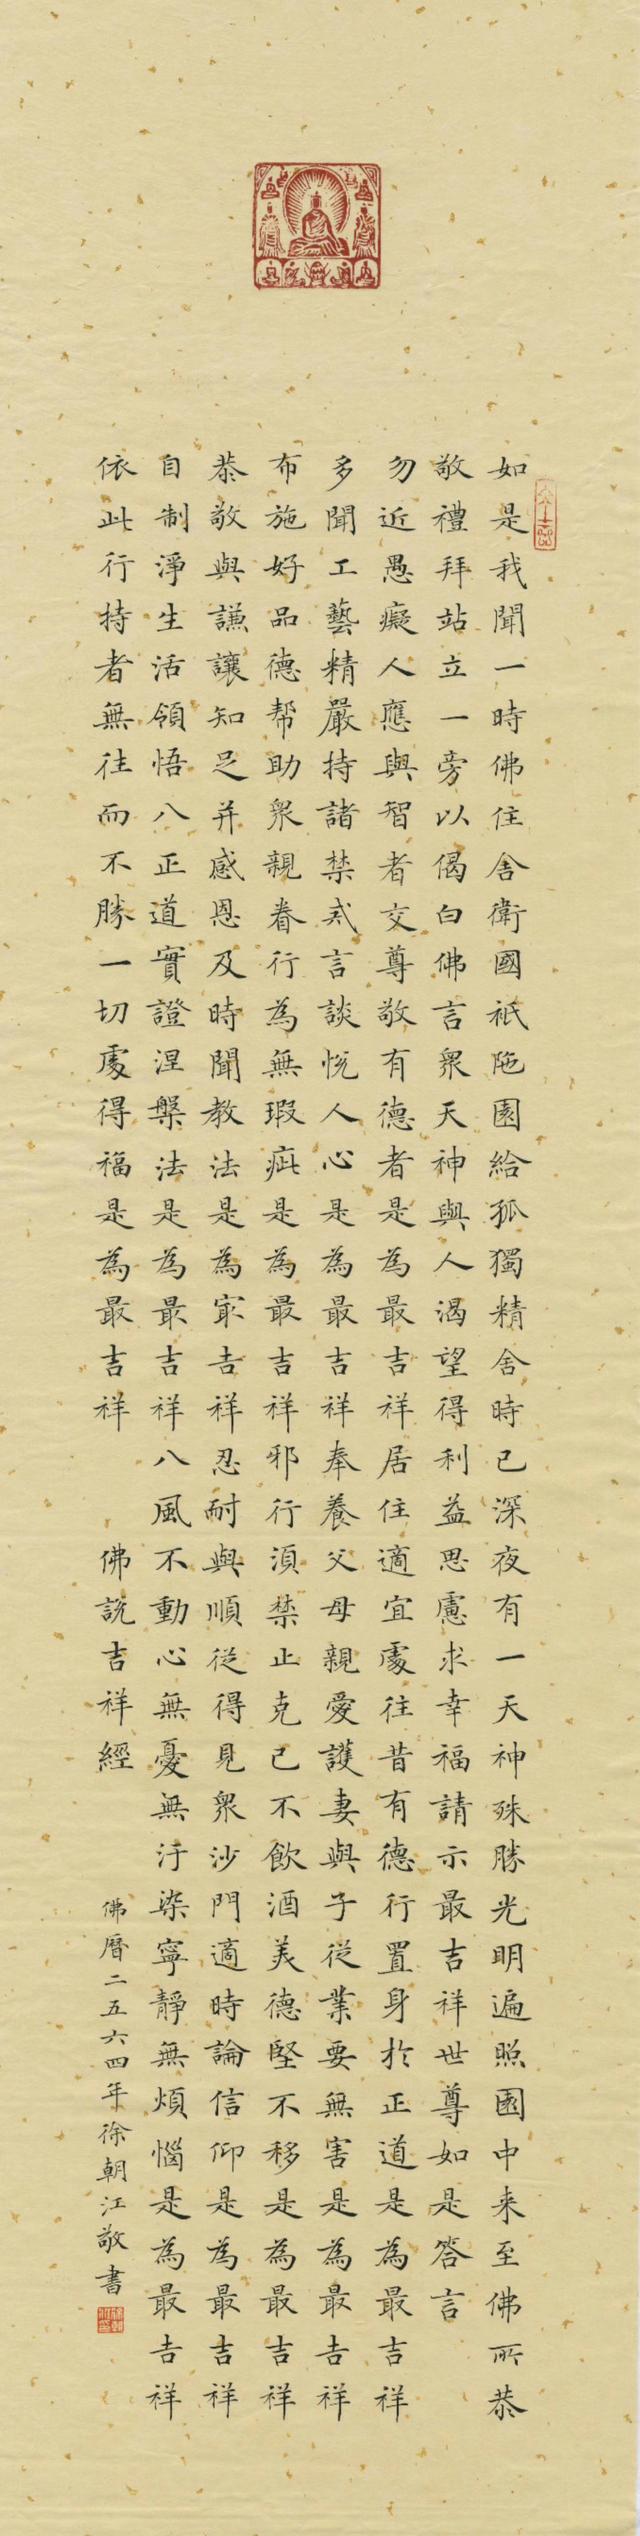 如是我聞一時佛住舍衛國祇陁園給孤獨精舍時已深夜有一天神殊勝光明遍照園中来至佛所恭
敬禮拜站立一旁以偈白佛言衆天神與人渴望得利益思慮求幸福請示最吉祥世尊如是答言
勿近愚癡人應與智者交尊敬有德者是為最吉祥居住適宜處往昔有德行置身於正道是為最吉祥
多聞工藝精嚴持諸禁戒言談悅人心是為最吉祥奉養父母親愛護妻與子從業要無害是為最吉祥
布施好品德帮助衆親眷行為無瑕疵是為最吉祥邪行須禁止克己不飲酒美德堅不移是為最吉祥
恭敬與謙讓知足并感恩及時聞教法是為冣吉祥忍耐與順從得見衆沙門適時論信仰是為最吉祥
自制淨生活領悟八正道實證涅槃法是為最吉祥八風不動心無憂無汙染寧靜無煩惱是為最吉祥
依此行持者無往而不勝一切處得福是為最吉祥 佛說吉祥經
佛曆二五六四年徐朝江敬書